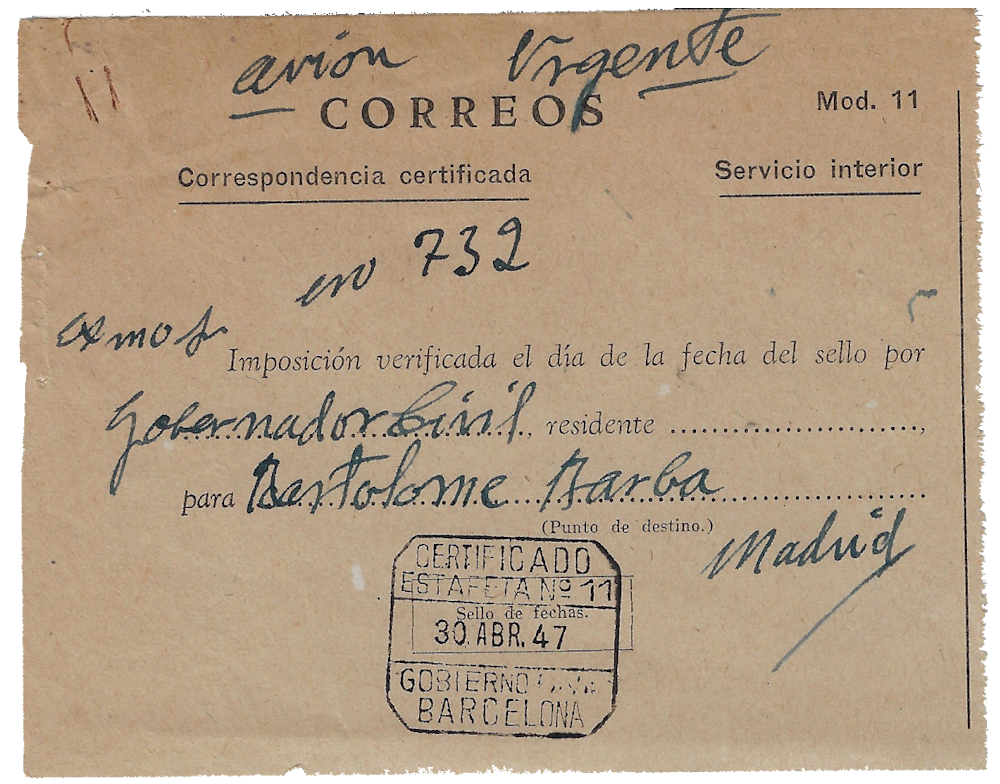 avión Urgente
CORREOS
Mod. 11
Correspondencia certificada
Servicio interior
732
Imposición verificada el día de la fecha del sello por
Gobernador Civil, residente ....................,
para Bartolome Barba
(Punto de destino.)
Madrid
CERTIFICADO
ESTAFETA Nº 11
Sello de fechas.
30.ABR.47
GOBIERNO
BARCELONA